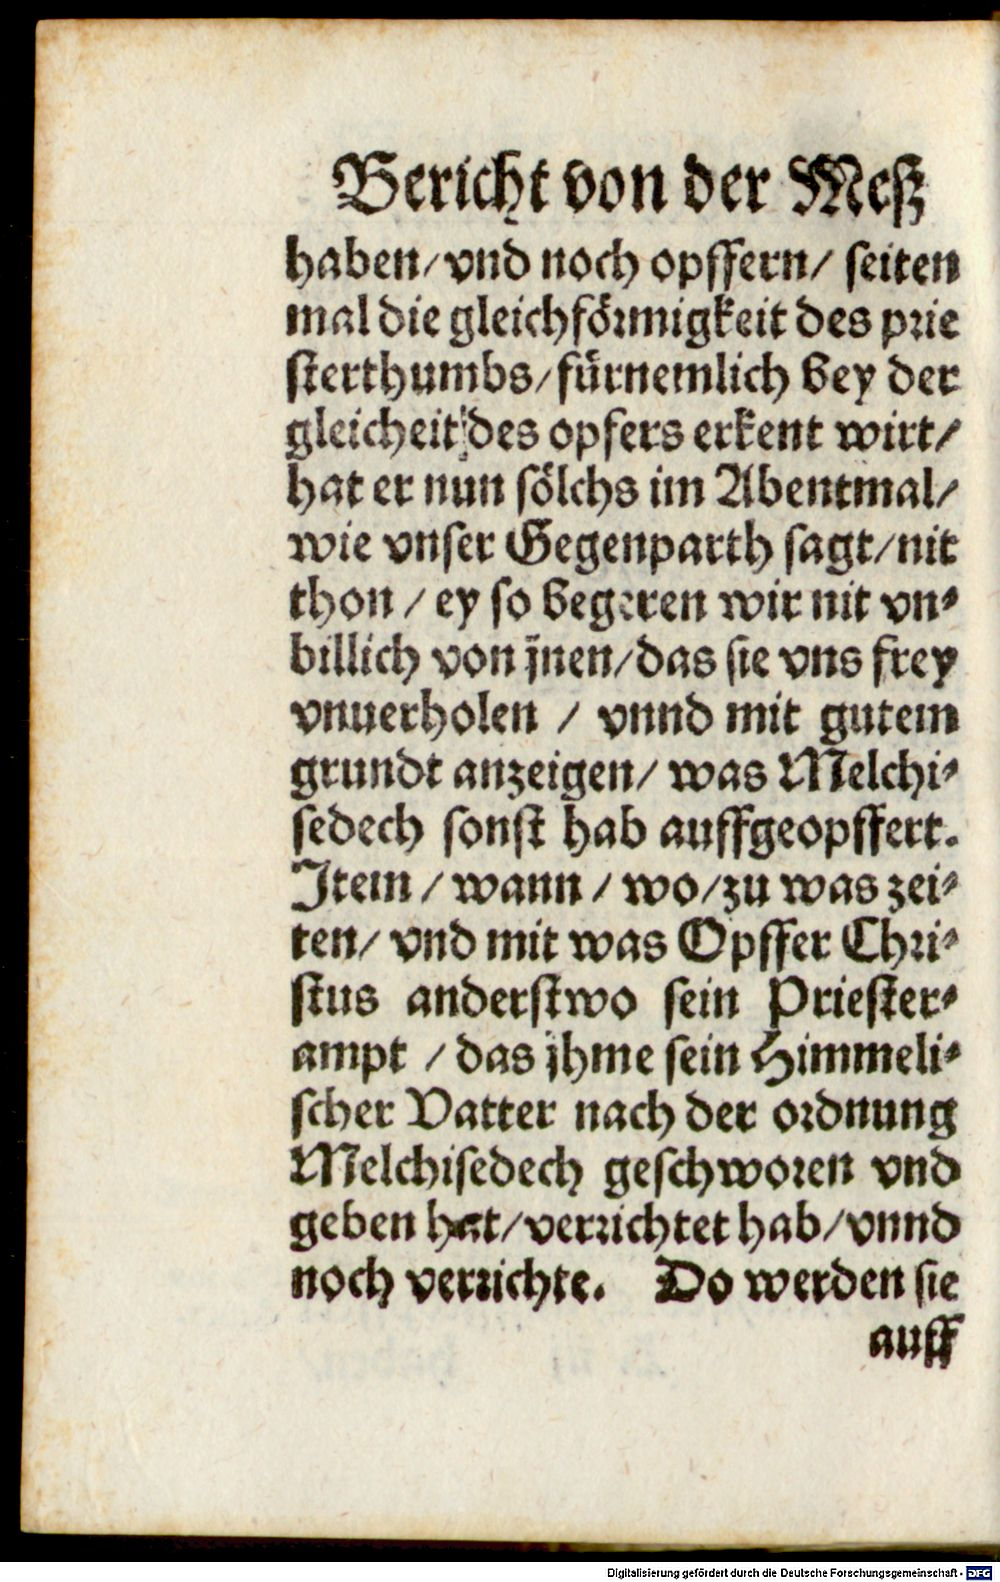 Bericht von der Meß
haben/ vnd noch opffern/ seiten
mal die gleichförmigkeit des prie
sterthumbs/ fürnemlich bey der
gleicheit des opfers erkent wirt/
hat er nun sölchs im Abentmal/
wie vnser Gegenparth sagt/ nit
thon / ey so begeren wir nit vn⸗
billich von jnen/ das sie vns frey
vnuerholen / vnnd mit gutem
grundt anzeigen/ was Melchi⸗
sedech sonst hab auffgeopffert.
Item / wann / wo/ zu was zei⸗
ten/ vnd mit was Opffer Chri⸗
stus anderstwo sein Priester⸗
ampt / das jhme sein Himmeli⸗
scher Vatter nach der ordnung
Melchisedech geschworen vnd
geben hat/ verrichtet hab/ vnnd
noch verrichte. Do werden sie
auff
Digitalisierung gefördert durch die Deutsche Forschungsgemeinschaft - DFG